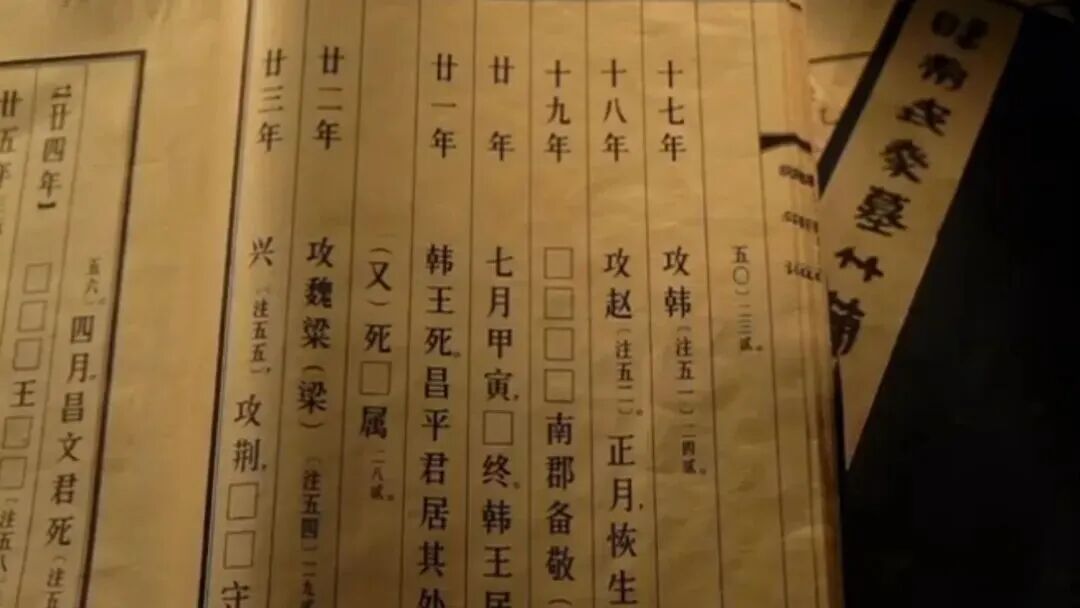 睡虎地秦墓竹简
五〇〕二三贰。
十七年 攻韩〔注五一〕二四贰。
十八年 攻赵〔注五二〕。正月,恢生
十九年 □□□□南郡备敬(
廿年 七月甲寅,□终。韩王居
廿一年 韩王死。昌平君居其处
(又)死□属 二八贰。
廿二年 攻魏梁(梁)〔注五四〕二九贰
廿三年 兴〔注五五〕,攻荆,□□守
【廿四年】 □□□王□□〔注五八
廿五年
五六〕。四月,昌文君死〔注五